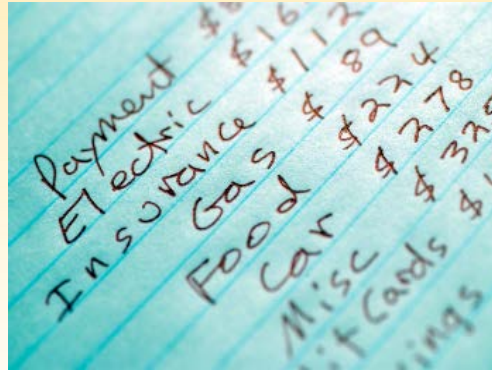 Payment $
Electric $16
Insurance $112
Gas $ 89
Food $224
Car $278
Misc $32
Cards $